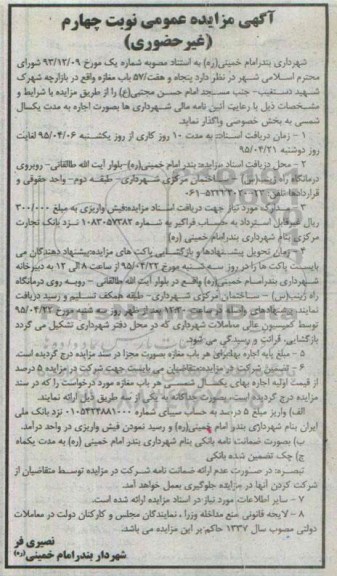 آگهی مزایده عمومی نوبت چهارم
(غیرحضوری)
شهرداری بندرامام خمینی(ره) به استناد مصوبه شماره یک مورخ ۹۳/۱۲/۰۹ شورای
محترم اسلامی شهر در نظر دارد پنجاه و هفت/۵۷ باب مغازه واقع در بازارچه شهرک
شهید دستغیب- جنب مسجد امام حسن مجتبی(ع) را از طریق مزایده با شرایط و
مشخصات ذیل با رعایت آئین نامه مالی شهرداری ها بصورت اجاره به مدت یکسال
شمسی به بخش خصوصی واگذار نماید.
۱ - زمان دریافت اسناد: به مدت ۱۰ روز کاری از روز یکشنبه ۹۵/۰۴/۰۶ لغایت
روز دوشنبه ۹۵/۰۴/۲۱
۲ - محل دریافت اسناد مزایده: بندر امام خمینی(ره)-بلوار آیت الله طالقانی- روبروی
درمانگاه ساختمان مرکزی شهرداری- طبقه دوم- واحد حقوقی و
قراردادها تلفن
۳ - مدارک مورد نیاز جهت دریافت اسناد مزایده: فیش واریزی به مبلغ ۳۰۰/۰۰۰
ریال غیرقابل استرداد به حساب فراگیر به شماره ۱۰۸۳۰۵۷۳۸۲ نزد بانک تجارت
مرکزی بنام شهرداری بندرامام خمینی (ره)
زمان تحویل پیشنهادها و بازگشایی پاکت های مزایده: پیشنهاد دهندگان می
بایست پاکت ها را در روز سه شنبه مورخ ۹۵/۰۴/۲۲ از ساعت ۸ الی ۱۲ به دبیرخانه
شهرداری بندرامام خمینی(ره) واقع در بلوار آیت الله طالقانی - روبه روی درمانگاه
راه زینب(س) - ساختمان مرکزی شهرداری- طبقه همکف تسلیم و رسید دریافت
نمایند. پیشنهادهای واصله در ساعت ۱۴:۳۰ بعد از ظهر روز سه شنبه مورخ ۹۵/۰۴/۲۲
توسط کمیسیون عالی معاملات شهرداری که در محل دفتر شهرداری تشکیل می گردد
بازگشایی، قرائت و رسیدگی می شود.
۵ - مبلغ پایه اجاره بهابرای هر باب مغازه بصورت مجزا در سند مزایده درج گردیده است.
۶ - تضمین شرکت در مزایده: متقاضیان می بایست جهت شرکت در مزایده ۵ درصد
از قیمت اولیه اجاره بهای یکسال شمسی هر باب مغازه مورد درخواست را که در سند
مزایده درج گردیده است، بصورت جداگانه به یکی از سه طریق ذیل ارائه نمایند.
الف) واریز مبلغ ۵ درصد به حساب سیبای شماره ۰۱۰۵۴۲۴۸۸۱۰۰۰ نزد بانک ملی
ایران بنام شهرداری بندر امام خمینی(ره) و رسید نمودن فیش واریزی در واحد درآمد.
ب) بصورت ضمانت نامه بانکی بنام شهرداری بندر امام خمینی (ره) به مدت یکماه
ج) چک تضمین شده بانکی
تبصره: در صورت عدم ارائه ضمانت نامه شرکت در مزایده توسط متقاضیان از
شرکت کردن آنها در مزایده جلوگیری بعمل خواهد آمد.
۷ - سایر اطلاعات مورد نیاز در اسناد مزایده ارائه شده است.
۸ - لایحه قانونی منع مداخله وزراء نمایندگان مجلس و کارکنان دولت در معاملات
دولتی مصوب سال ۱۳۳۷ حاکم بر این مزایده می باشد.
نصیری فر
شهردار بندرامام خمینی(ره)